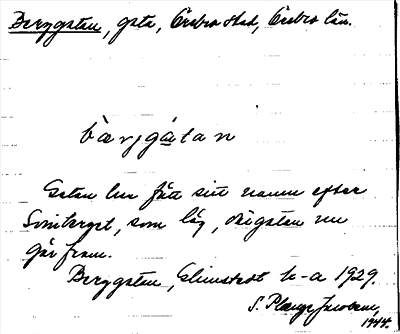 Berggatan, gata, Örebro stad, Örebro län.
bærjgátan
Gatan har fått sitt namn efter
berget, som låg, där gatan nu
går fram.
Berggatan, 1929.
S.
1944.